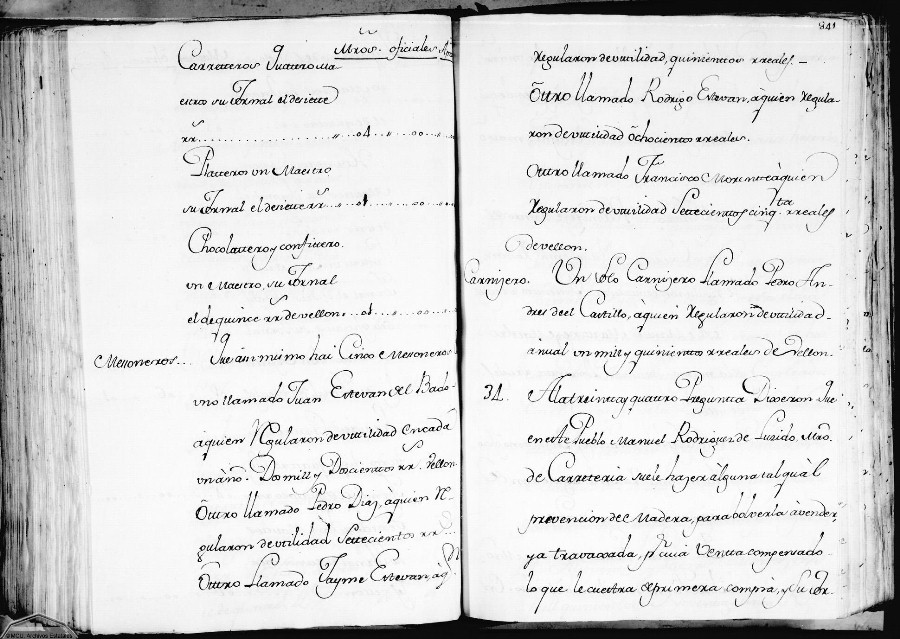 Mros. oficiales
Carretteros Quattro Ma
estros su Jornal el de siette
rr...........................,,...04...,,...00...,,
Platteros vn Maestro
su Jornal el de siette rr....,,...01...,,...00...,,
Chocolattero y confittero.
vn Maestro, su Jornal
el de quince rr. de vellon...,,...01...,,...00...,,
Mesoneros... Que asimismo hai Cinco Mesoneros
vno llamado Juan Estevan del Bado
a quien Regularon de vtilidad en cada
vn año. Dos mill y Doscientos rr. Vellon.
Ottro llamado Pedro Diaz, a quien R-
gularon de vtilidad Settecientos rr...
Ottro Llamado Jayme Estevan, a q
841
Regularon de vtilidad, quinientos rreales.-
Ottro llamado Rodrigo Estevan, a quien Regula-
ron de vtilidad Ochocientos rreales.
Ottro llamado Franco. Moreno a quien
Regularon de vtilidad Settecientos cinqta. rreales
de vellon.
Carnizero. Un Solo Carnizero Llamado Pedro An-
dres de el Castillo, a quien Regularon de vtilidad
anual vn mill y quinientos rreales de Vellon.
34. A la treinta y quattro Pregunta Dixeron Que
en este Pueblo Manuel Rodriguez de Luzido. Mro.
de Carreteria suele hazer alguna tal qual
prevencion de Madera, para bolverla a vender,
ya travaxada, cuia Venta compensado
lo que le cuesta de primera compra, y Su Jor-
©MCU. Archivos Estatales